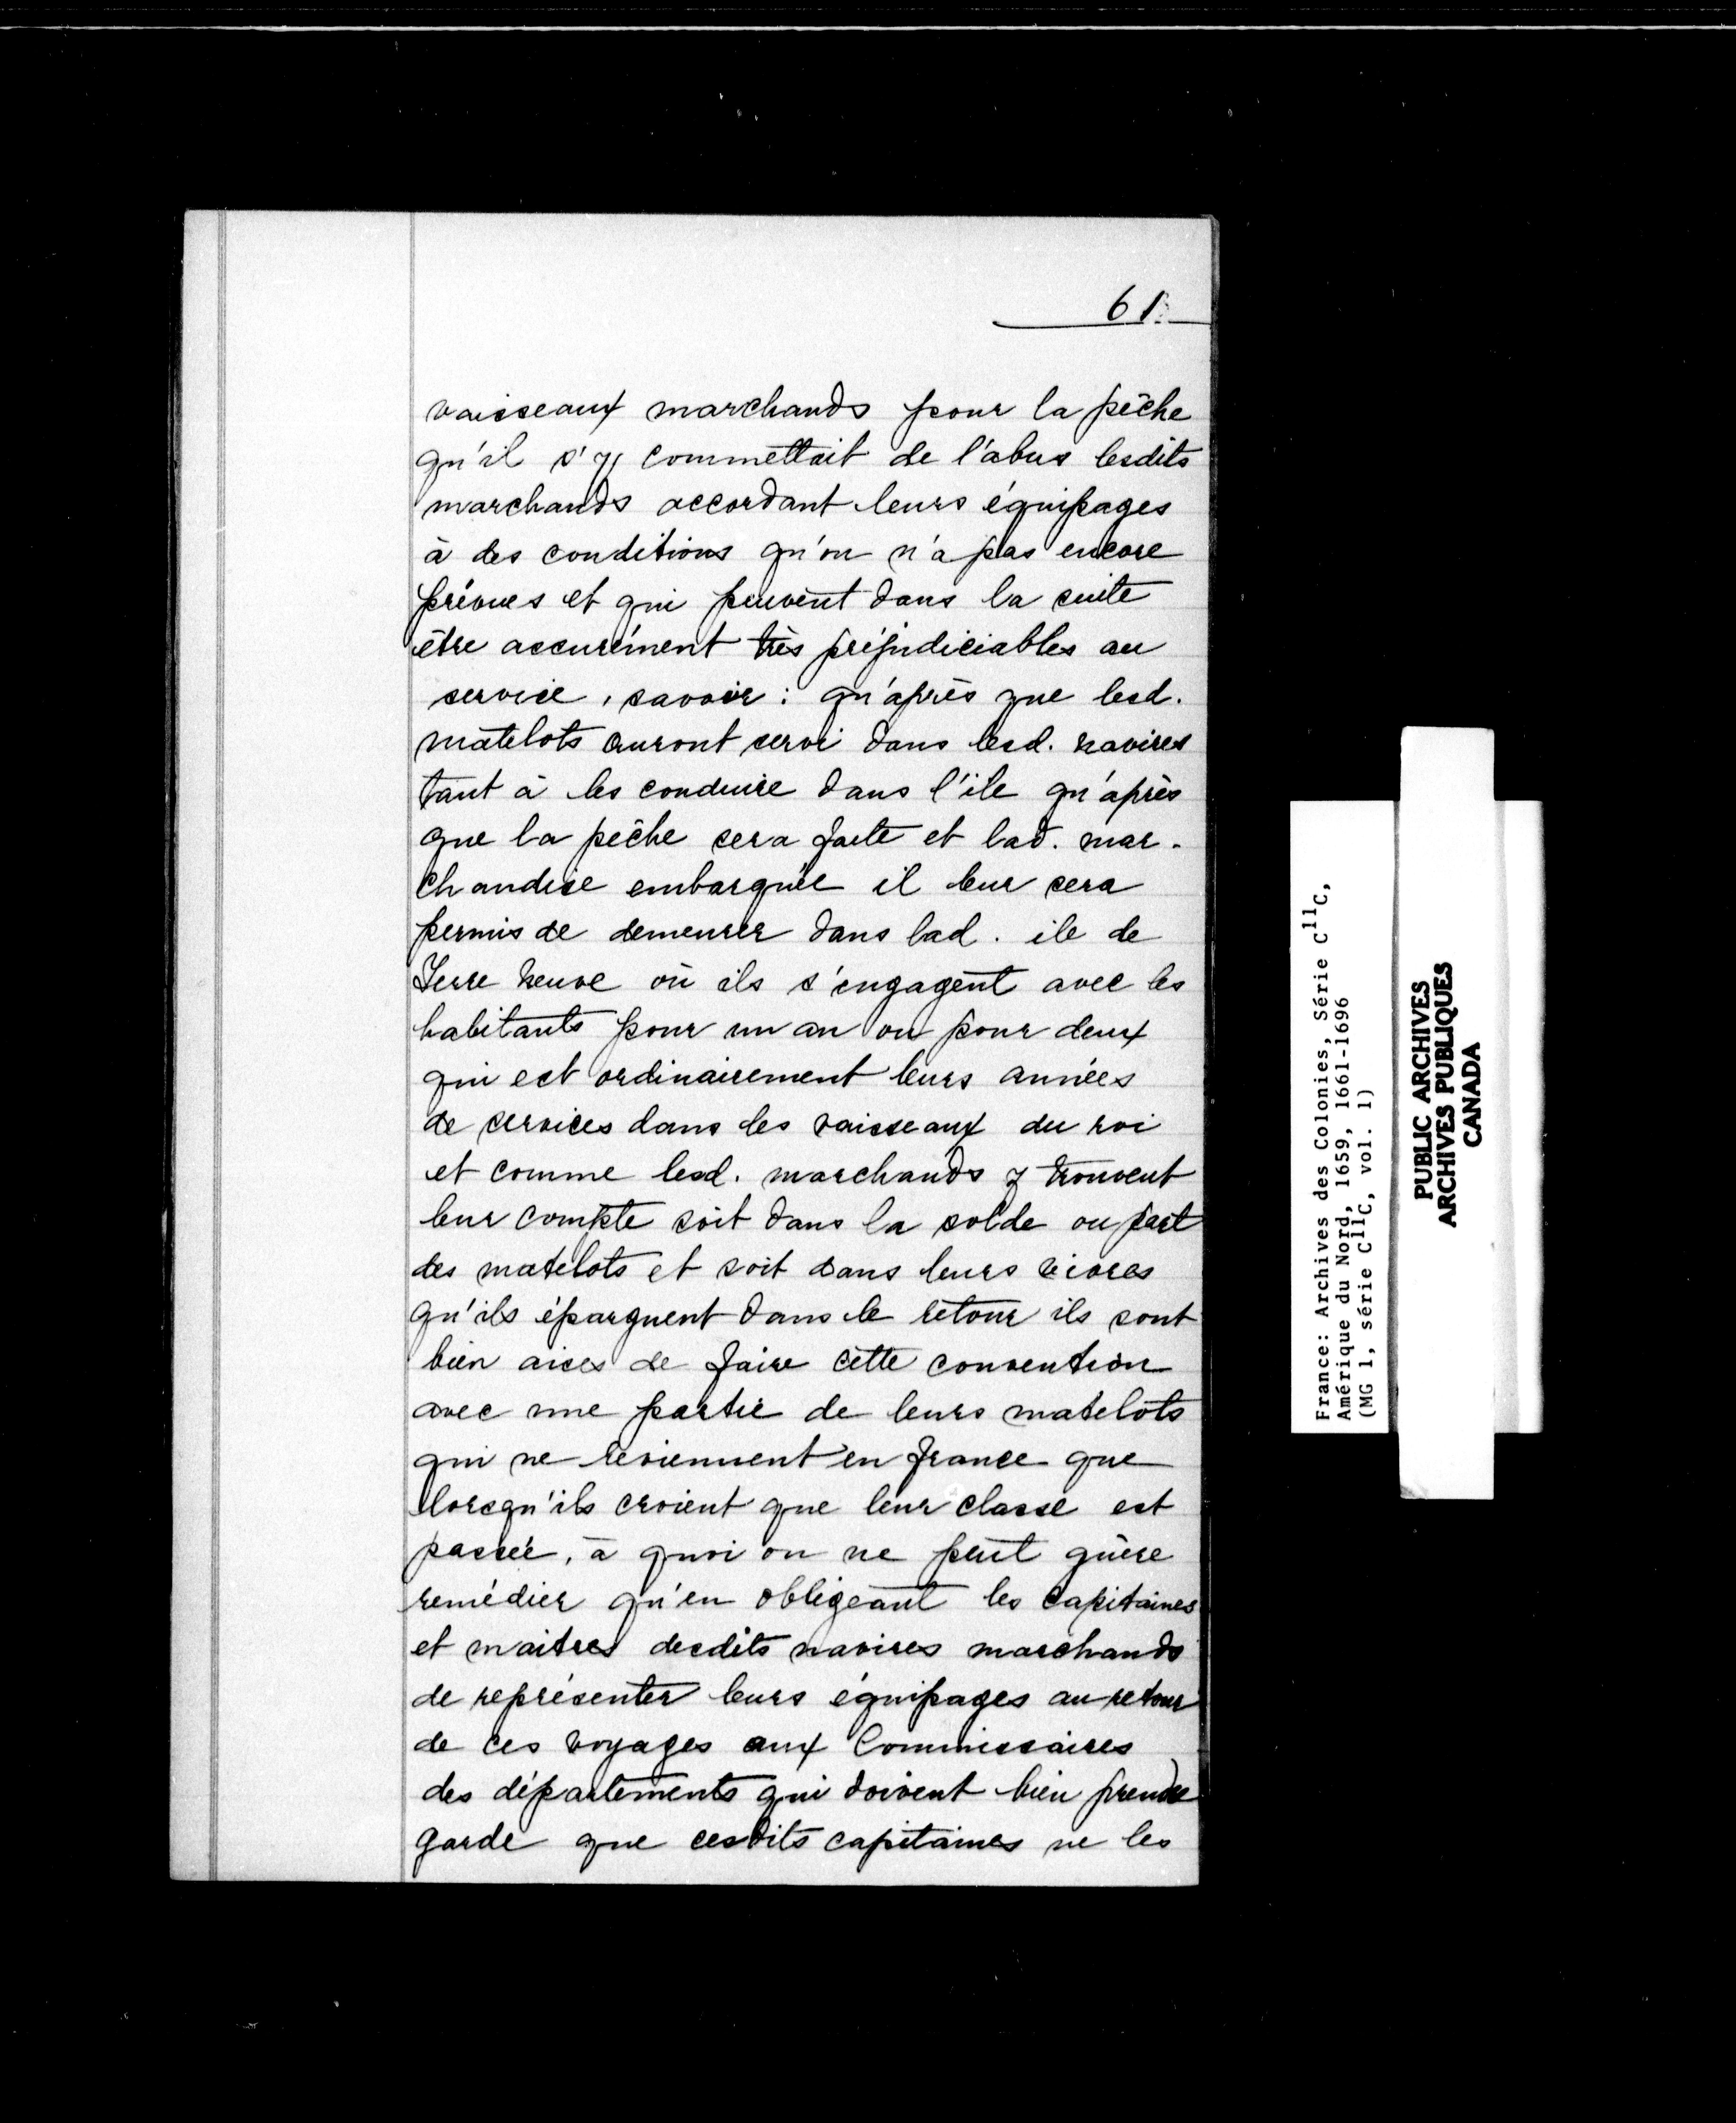 61.
vaisseaux marchands pour la pêche
qu'il s'y commettait de l'abus lesdits
marchands accordant leurs équipages
à des conditions qu'on n'a pas encore
prévues et qui peuvent dans la suite
être assurément très préjudiciables au
service, savoir : qu'après que lesd.
matelots auront servi dans lesd. navires
tant à les conduire dans l'ile qu'après
que la pêche sera faite et lad. mar-
chandise embarquée il leur sera
permis de demeurer dans lad. ile de
Terre neuve où ils s'engagent avec les
habitants pour un an ou pour deux
qui est ordinairement leurs années
de services dans les vaisseaux du roi
et comme lesd. marchands y trouvent
leur compte soit dans la solde ou part
des matelots et soit dans leurs vivres
qu'ils épargnent dans le retour ils sont
bien aises de faire cette convention
avec une partie de leurs matelots
qui ne reviennent en france que
lorsqu'ils croient que leur classe est
passée, à quoi on ne peut guère
remédier qu'en obligeant les capitaines
et maitres desdits navires marchands
de représenter leurs équipages au retour
de ces voyages aux Commissaires
des départements qui doivent bien prendre
garde que cesdits capitaines ne les
France: Archives des Colonies, Série C11C,
Amérique du Nord, 1659, 1661-1696
(MG 1, série C11C, vol. 1)
PUBLIC ARCHIVES
ARCHIVES PUBLIQUES
CANADA